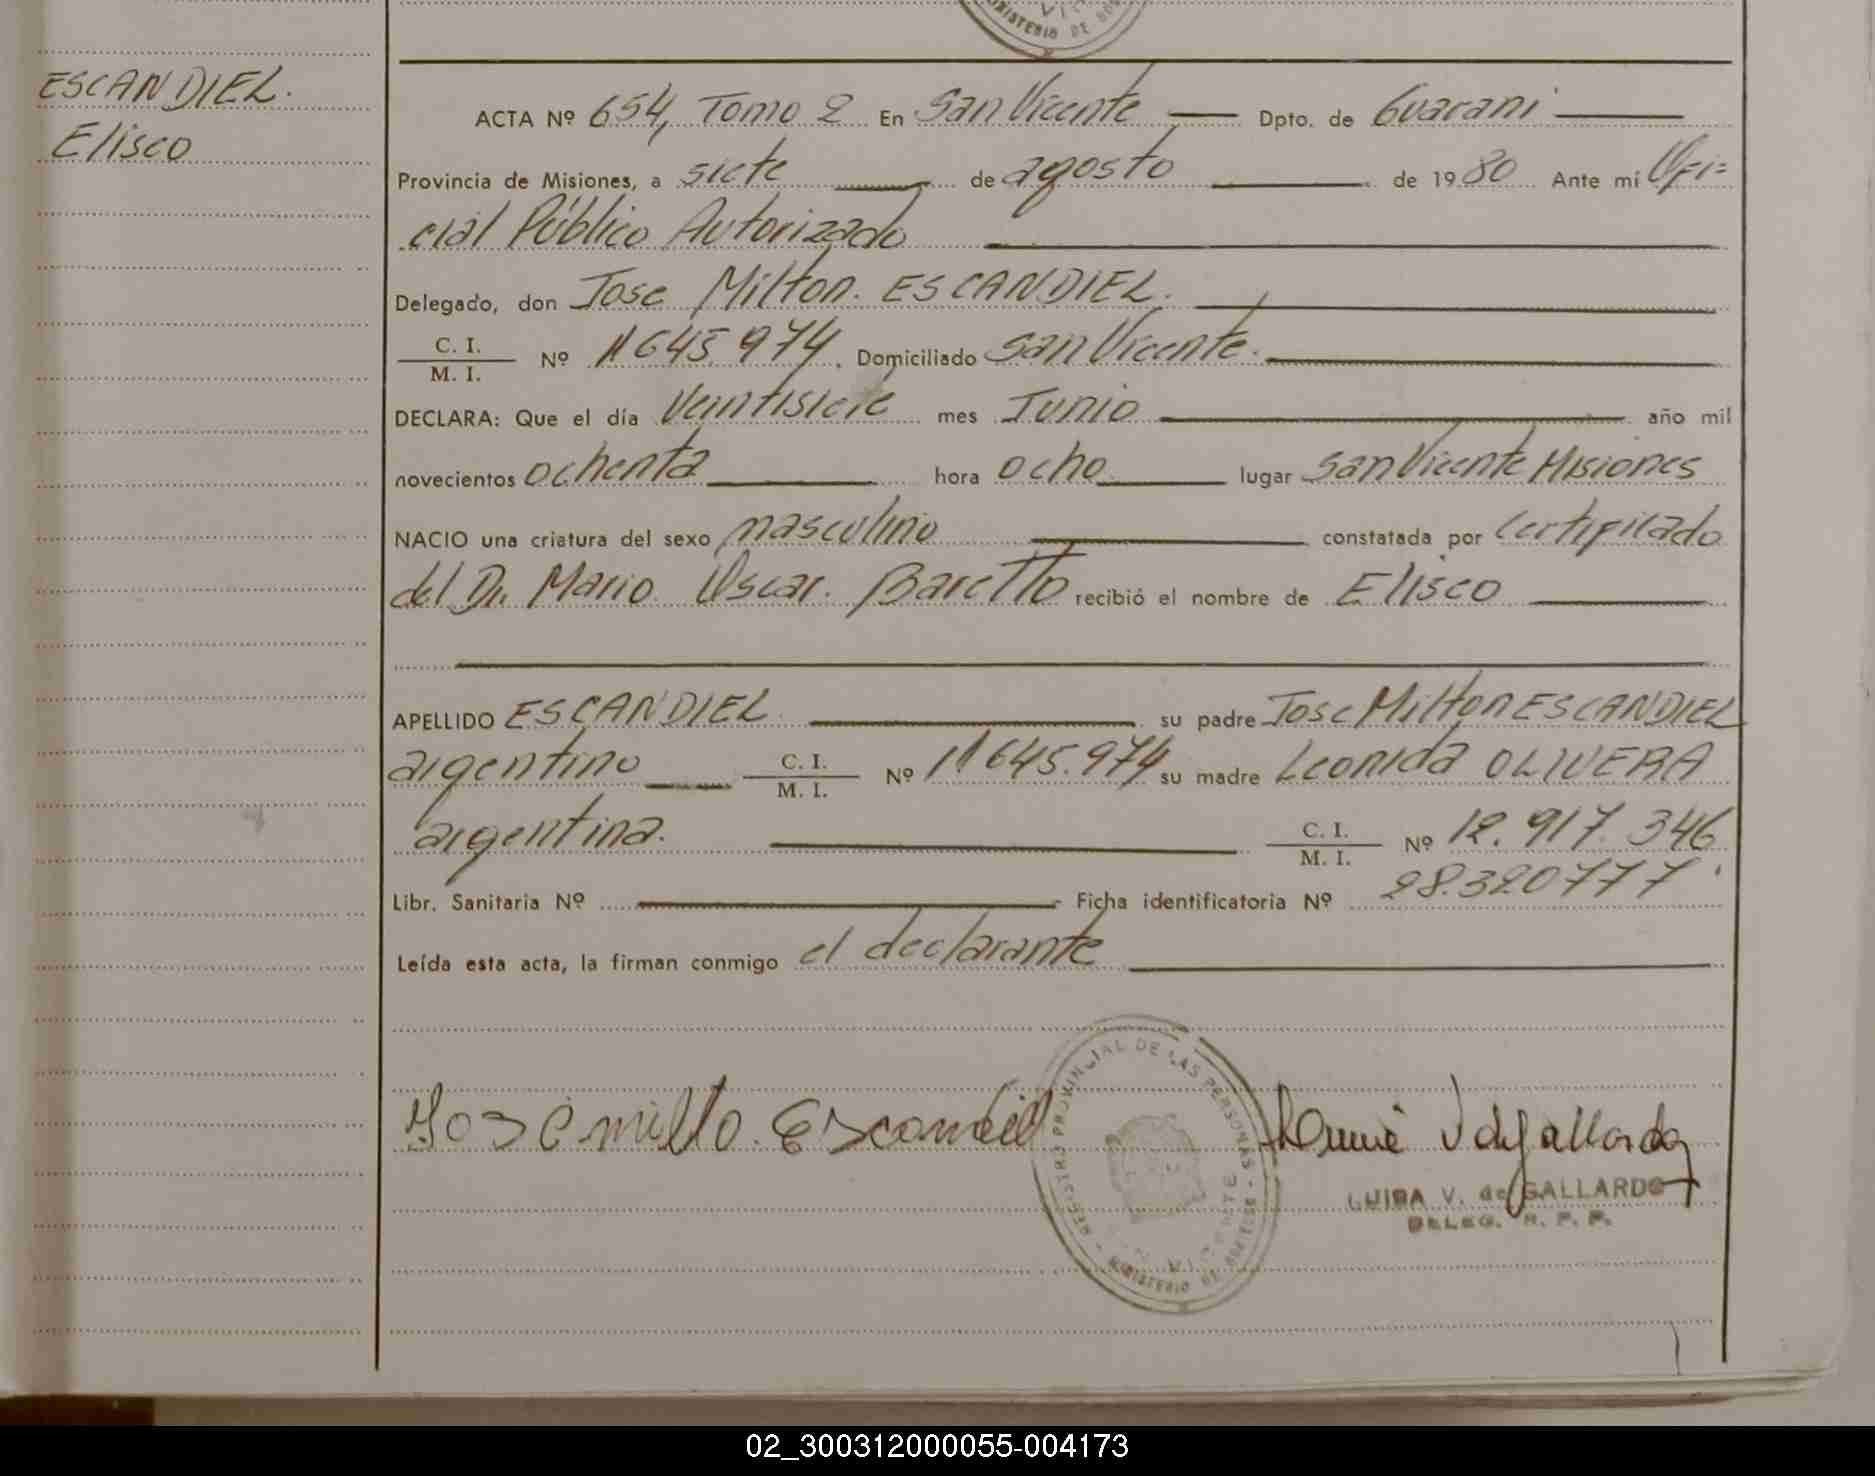 MINISTERIO DE
ESCANDIEL.
Eliseo
ACTA Nº 654, Tomo 2 En San Vicente Dpto. de Guarani
Provincia de Misiones, a siete de agosto de 1980 Ante mí Ofi=
cial Público Autorizado
Delegado, don Jose Milton. ESCANDIEL.
C. I. / M. I. Nº 11645.974. Domiciliado San Vicente.
DECLARA: Que el día Veintisiete mes Junio año mil
novecientos ochenta hora ocho lugar San Vicente Misiones
NACIO una criatura del sexo masculino constatada por Certificado
del Dr. Mario Oscar. Baretto recibió el nombre de Eliseo
APELLIDO ESCANDIEL su padre Jose Milton ESCANDIEL
argentino C. I. / M. I. Nº 11645.974 su madre Leonida OLIVERA
argentina. C. I. / M. I. Nº 12.917.346
Libr. Sanitaria Nº Ficha identificatoria Nº 28.320777.
Leída esta acta, la firman conmigo el declarante
REGISTRO PROVINCIAL DE LAS PERSONAS - MINISTERIO DE
LUISA V. de GALLARDO
DELEG. R. P. P.
02_300312000055-004173